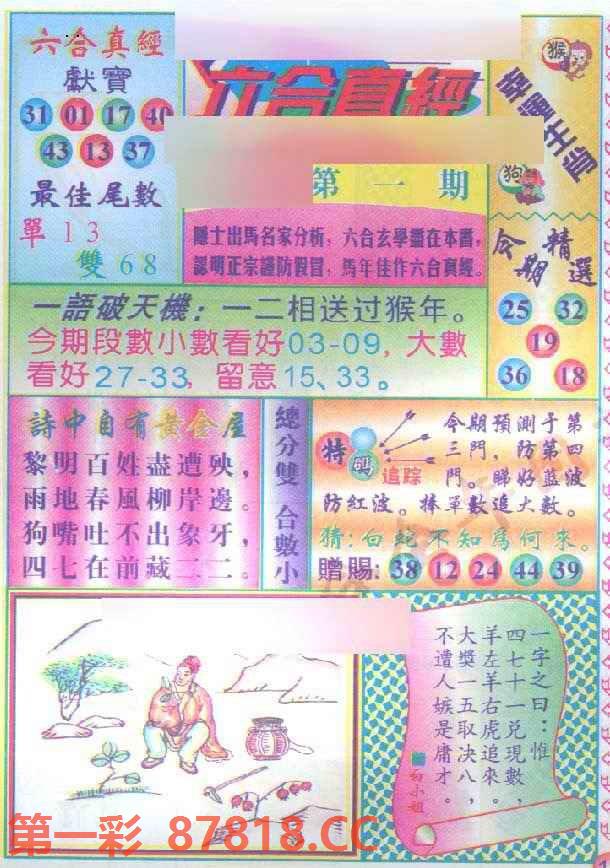 六合真經
獻寶
31 01 17 40
43 13 37
最佳尾數
單13
雙68
六合真經
第一期
隱士出馬名家分析，六合玄學盡在本冊，
認明正宗謹防假冒，馬年佳作六合真經。
猴
幸運生肖
狗
今期精選
25 32
19
36 18
一語破天機：一二相送过猴年。
今期段數小數看好03-09，大數
看好27-33，留意15、33。
詩中自有黃金屋
黎明百姓盡遭殃，
雨地春風柳岸邊。
狗嘴吐不出象牙，
四七在前藏二二。
總分雙 合數小
特碼
追踪
今期預測于第
三門，防第四
門。睇好藍波
防紅波。捧單數追大數。
猜：白蛇不知為何來。
贈賜：38 12 24 44 39
一字之曰：惟
四七十一兑現數，
羊左羊右虎追來。
大獎一五取决八，
不遭人嫉是庸才。
白小姐
第一彩 87818.CC